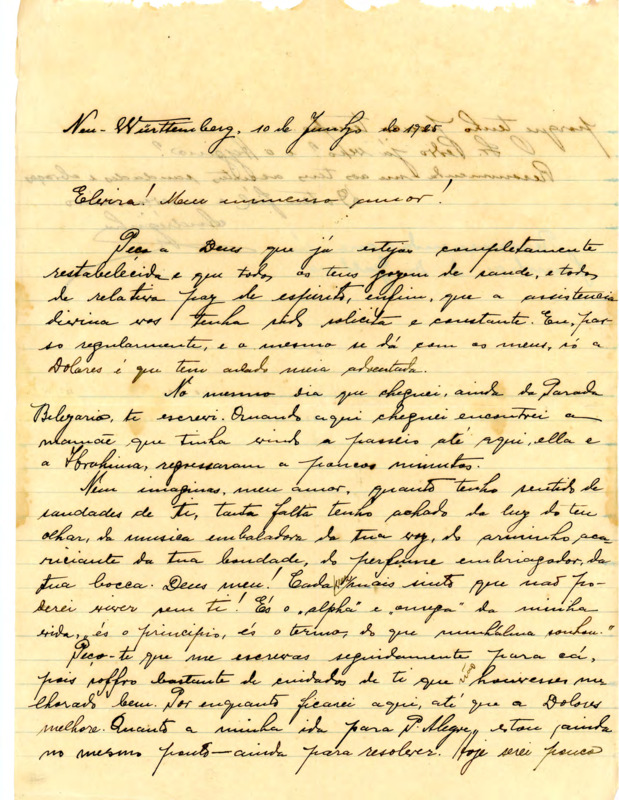 Neu-Württemberg, 10 de Junho de 1925
Elvira! Meu immenso amor!
Peço a Deus que já estejas completamente
restabelecida e que todos os teus gozem de saude, e todos,
de relativa paz de espirito, enfim, que a assistencia
divina vos tenha sido solicita e constante. Eu, pas-
so regularmente, e o mesmo se dá com os meus, só a
Dolores é que tem andado meia adoentada.
No mesmo dia que cheguei, ainda da Parada
Belizario, te escrevi. Quando aqui cheguei encontrei a
mamãe que tinha vindo a passeio até aqui, ella e
a Ibrahima, regressaram a poucos minutos.
Nem imaginas, meu amor, quanto tenho sentido de
saudades de ti, tanta falta tenho achado da luz do teu
olhar, da musica embaladora da tua voz, do arminho, aca-
riciante da tua bondade, do perfume embriagador, da
tua bocca. Deus meu! Cada vez mais sinto que não po-
derei viver sem ti! És o "alpha" e "omega" da minha
vida, "és o principio, és o termo, do que minhalma sonhou."
Peço-te que me escrevas seguidamente para cá,
pois soffro bastante de cuidados de ti que não houvesses me-
lhorado bem. Por enquanto ficarei aqui, até que a Dolores
melhore. Quanto a minha ida para P. Alegre, estou, ainda
no mesmo ponto — ainda para resolver. Hoje serei pouco